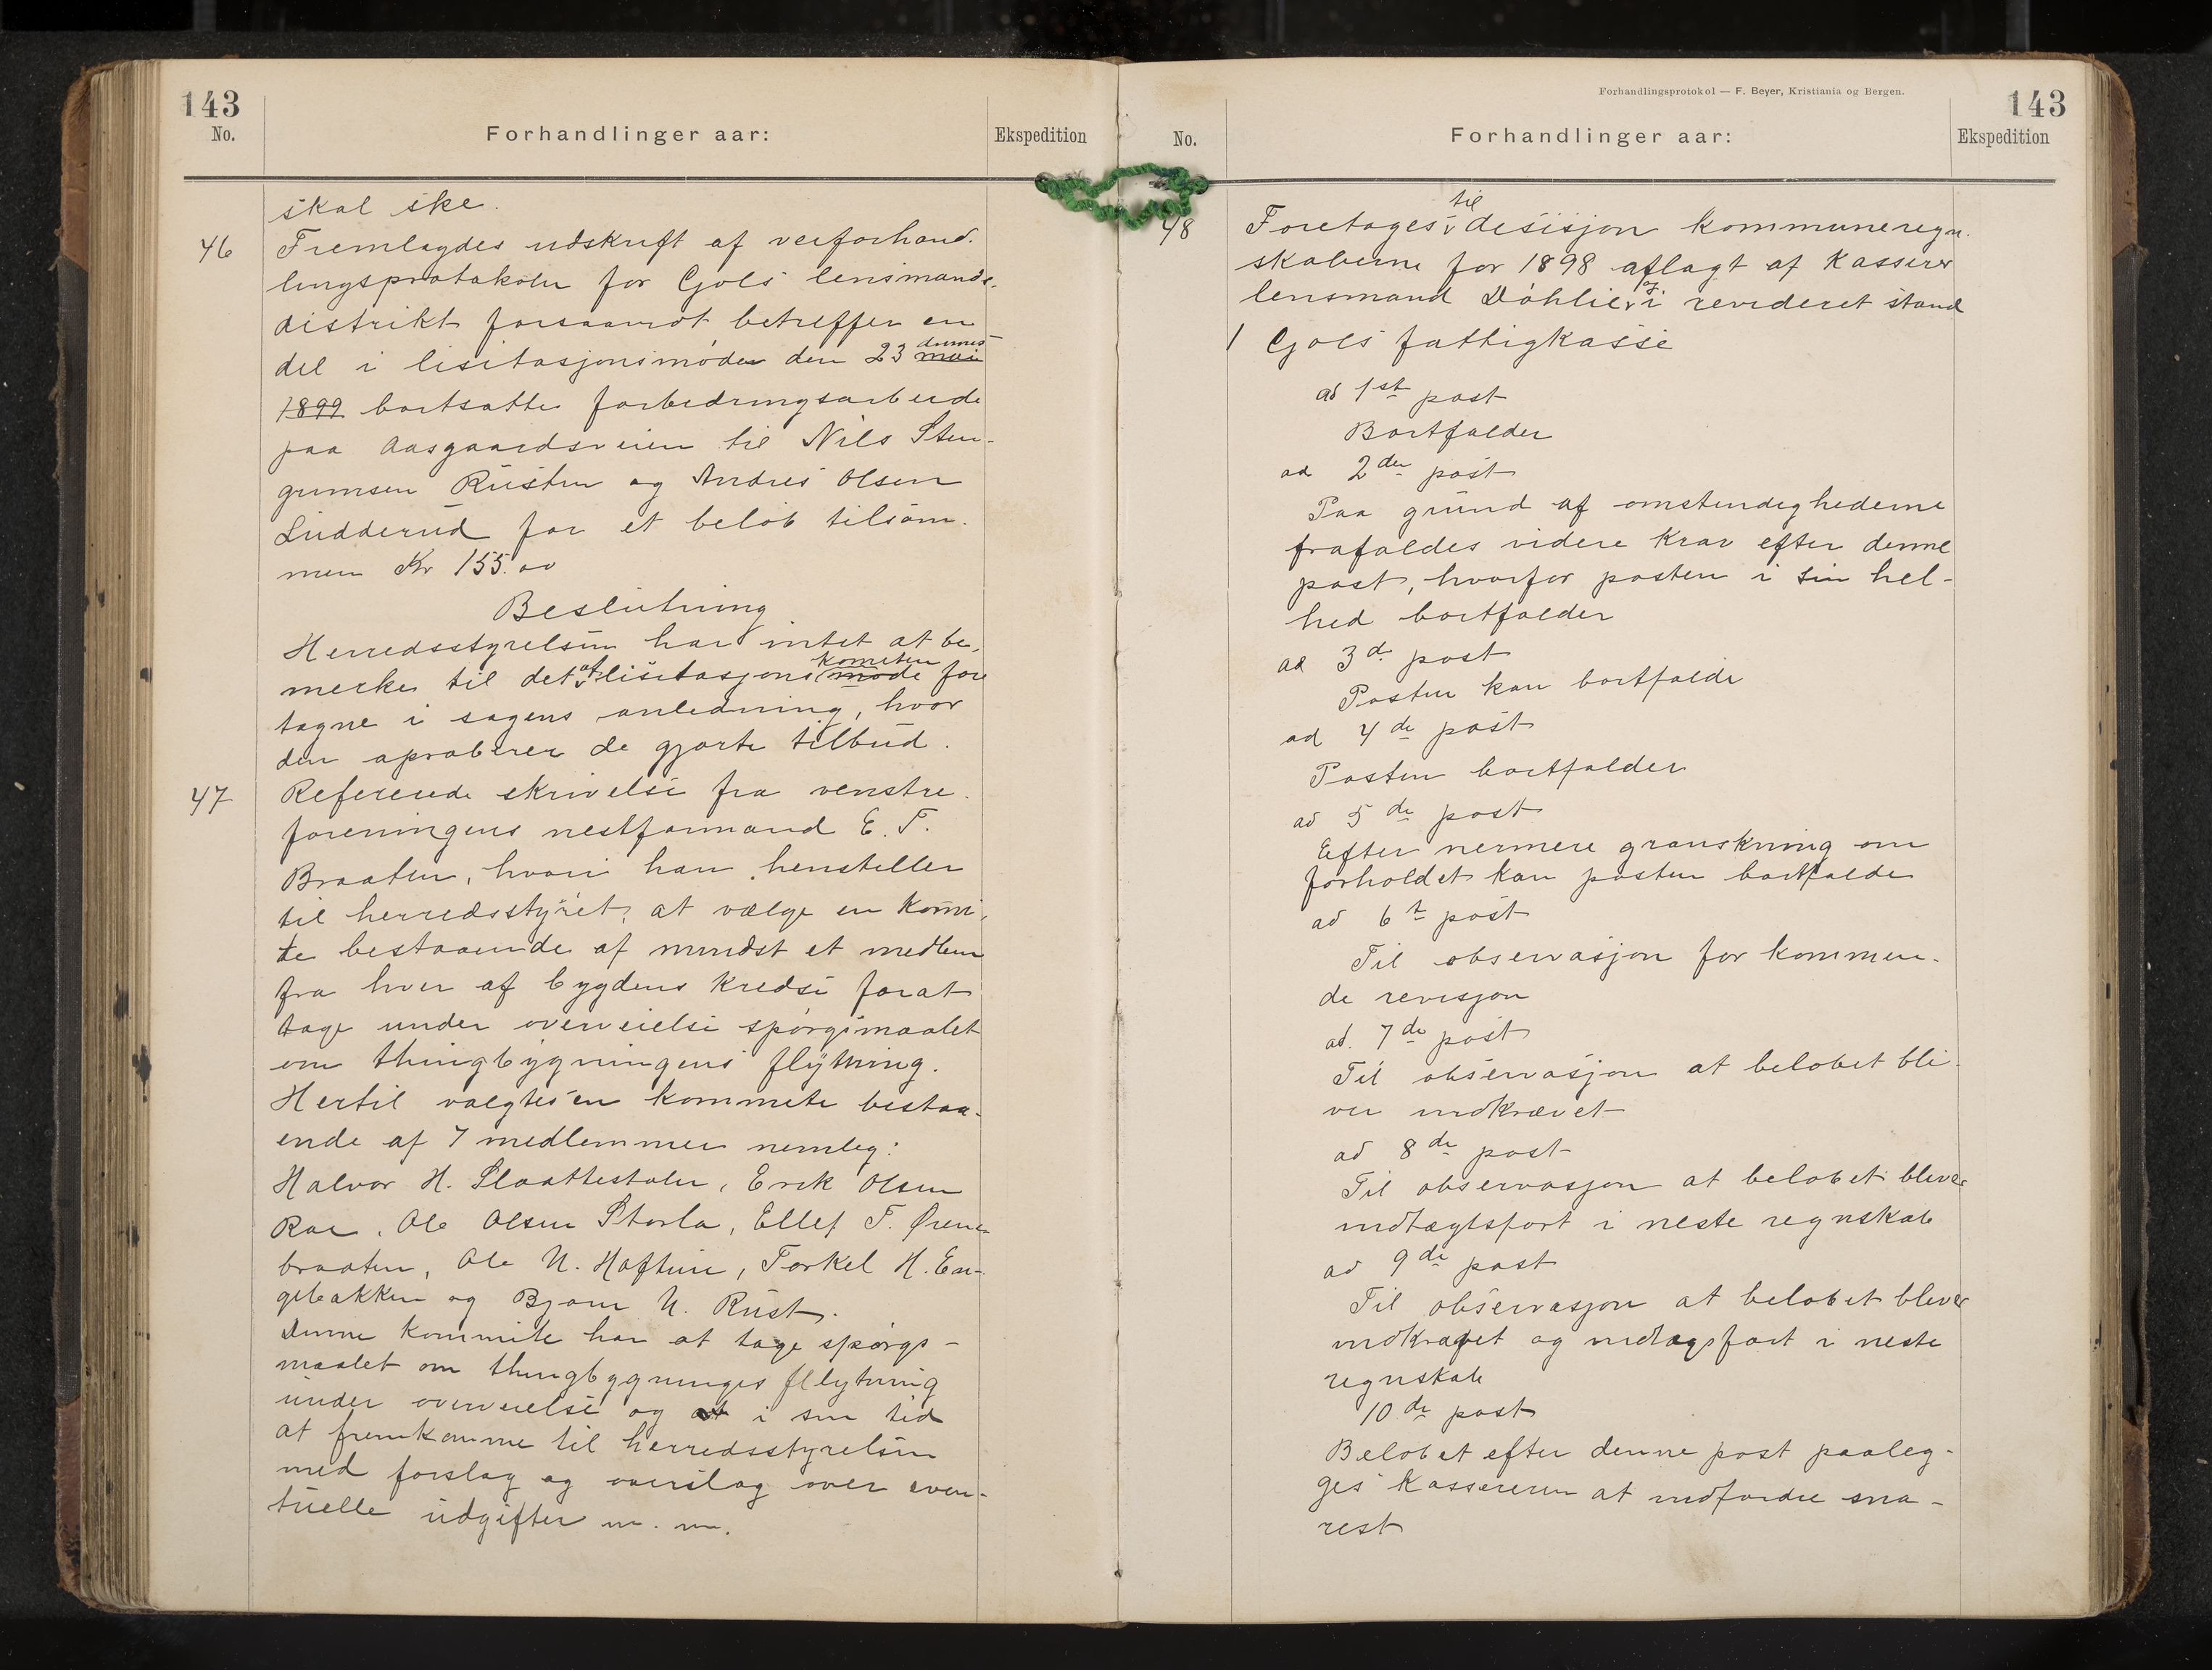 143
No.
Forhandlinger aar:
Ekspedition
skal ske.
46 Fremlagdes udskrift af veiforhand-
lingsprotokolen for Gols lensmands-
distrikt forsaavidt betreffer en
del i lisitasjonsmøder den 23 mai dennes
1899 bortsatte forbedringsarbeide
paa Aasgaardsveien til Nils Sten-
grimsen Rusten og Andres Olsen
Ludderud for et beløb tilsam-
men Kr 155.00
Beslutning
Herredsstyrelsen har intet at be-
merke til det af lisitasjons møde komiteen fore
tagne i sagens anledning, hvor
den aproberer de gjorte tilbud.
47 Refererede skrivelse fra venstre-
foreningens nestformand E. T.
Braaten, hvori han henstiller
til herredsstyret, at vælge en komi-
te bestaaende af mindst et medlem
fra hver af bygdens kredse forat
tage under overveielse spørgsmaalet
om thingbygningens flytning.
Hertil valgtes en kommite bestaa-
ende af 7 medlemmer nemlig:
Halvor H. Slaattestølen, Erik Olsen
Roe, Ole Olsen Storla, Ellef T. Ørene-
braaten, Ole N. Haftun, Torkel H. En-
gebakken og Bjørn N. Rust.
Denne kommite har at tage spørgs-
maalet om thingbygninges fllytning
under overveielse og at i sin tid
at fremkomme til herredsstyrelsen
med forslag og overslag over even-
tuelle udgifter m. m.
Forhandlingsprotokol — F. Beyer, Kristiania og Bergen.
143
No.
Forhandlinger aar:
Ekspedition
48 Foretages til desisjon kommuneregn-
skaberne for 1898 aflagt af kasserer
lensmand Døhlie, og i revideret stand
1 Gols fattigkasse
ad 1st post
Bortfalder
ad 2den post
Paa grund af omstendighederne
frafaldes videre krav efter denne
post, hvorfor posten i sin hel-
hed bortfalder
ad 3d. post
Posten kan bortfalde
ad 4de post
Posten bortfalder
ad 5de post
Efter nermere granskning om
forholdet kan posten bortfalde
ad 6t post
Til observasjon for kommen-
de revisjon
ad. 7de post
Til observasjon at beløbet bli-
ver indkrævet
ad 8de post
Til observasjon at beløbet bliver
indtægtsført i neste regnskab
ad 9de post
Til observasjon at beløbet bliver
indkrævet og indtægsført i neste
regnskab
10de post
Beløbet efter denne post paaleg-
ges kassereren at indfordre sna-
rest